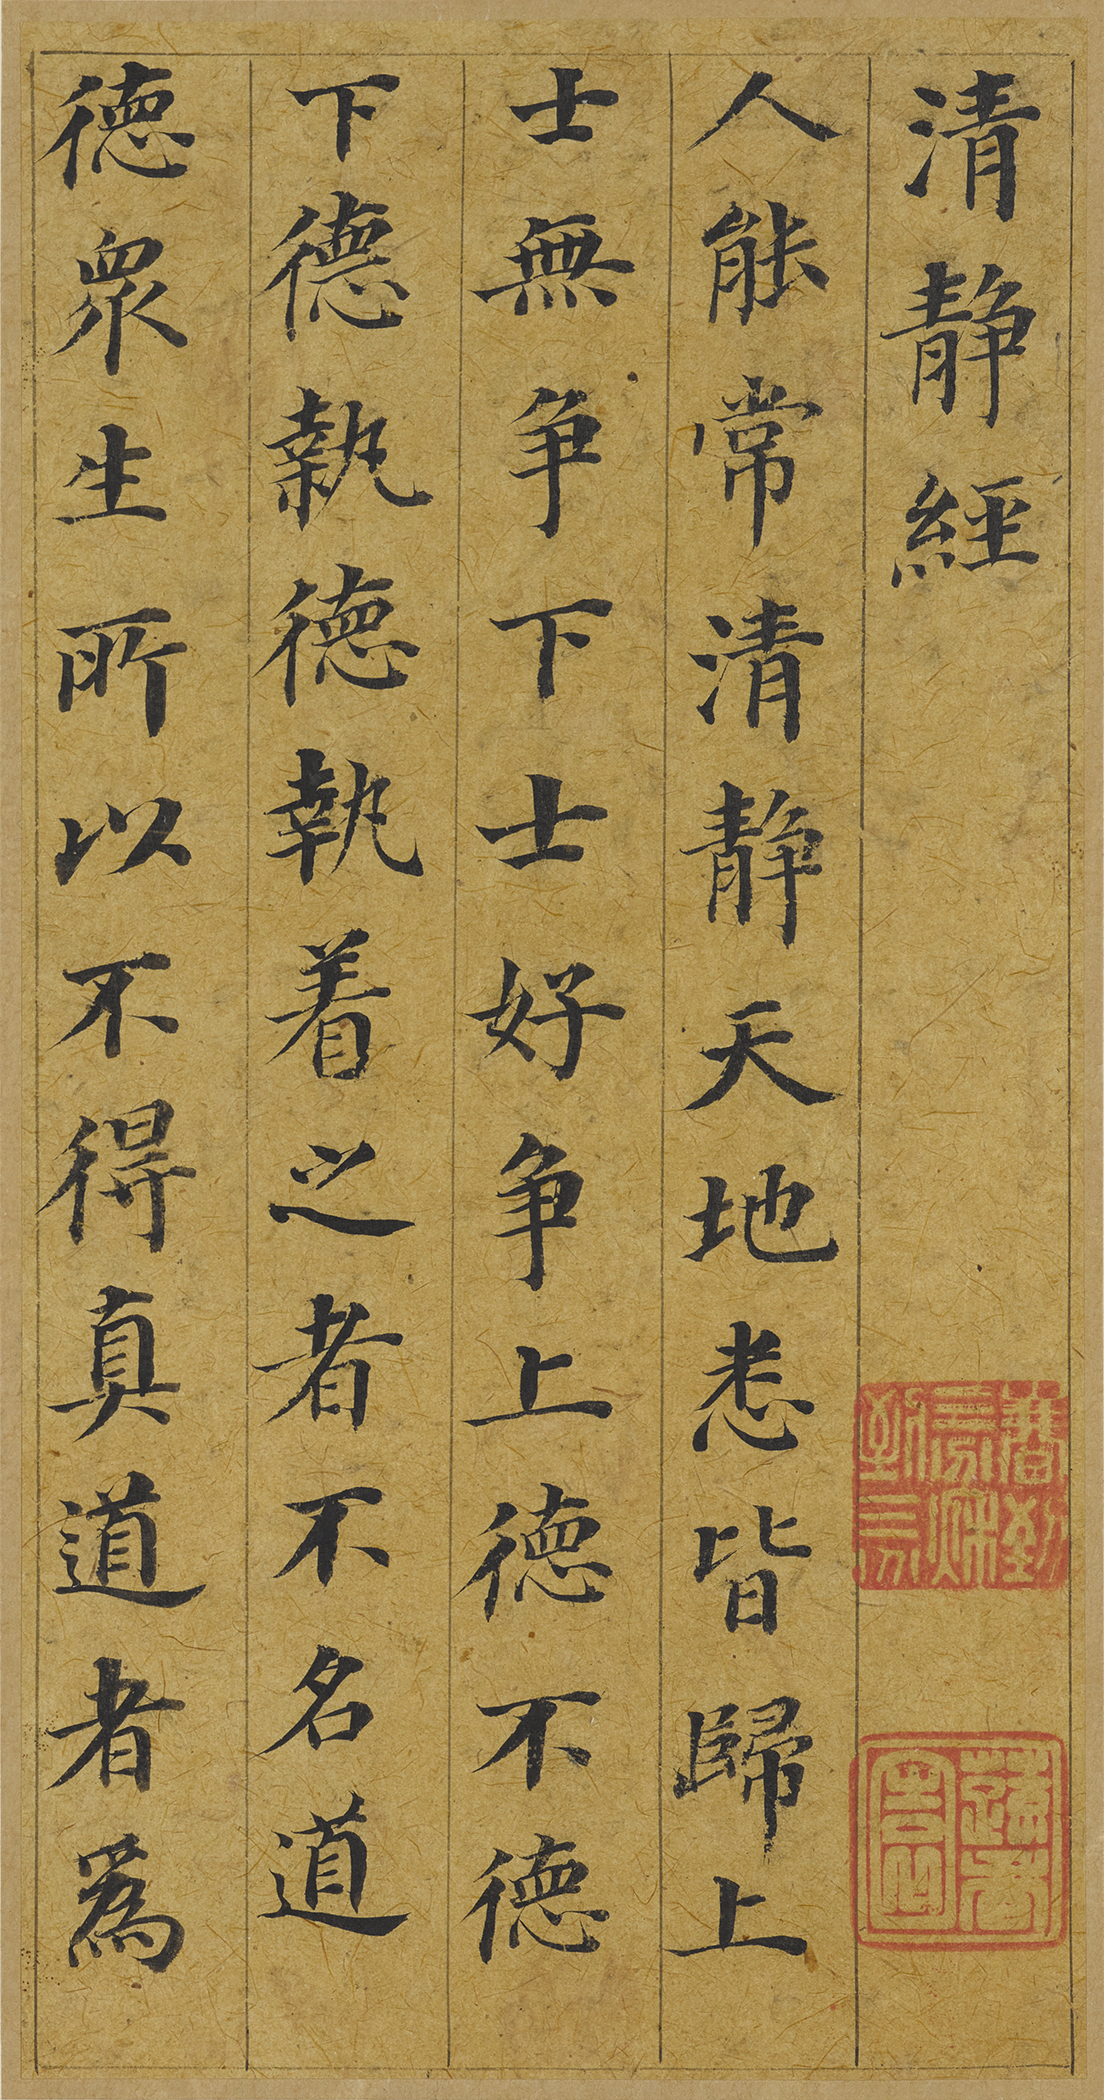 清静經
人能常清静天地悉皆歸上
士無争下士好争上德不德
下德執德執着之者不名道
德眾生所以不得真道者為